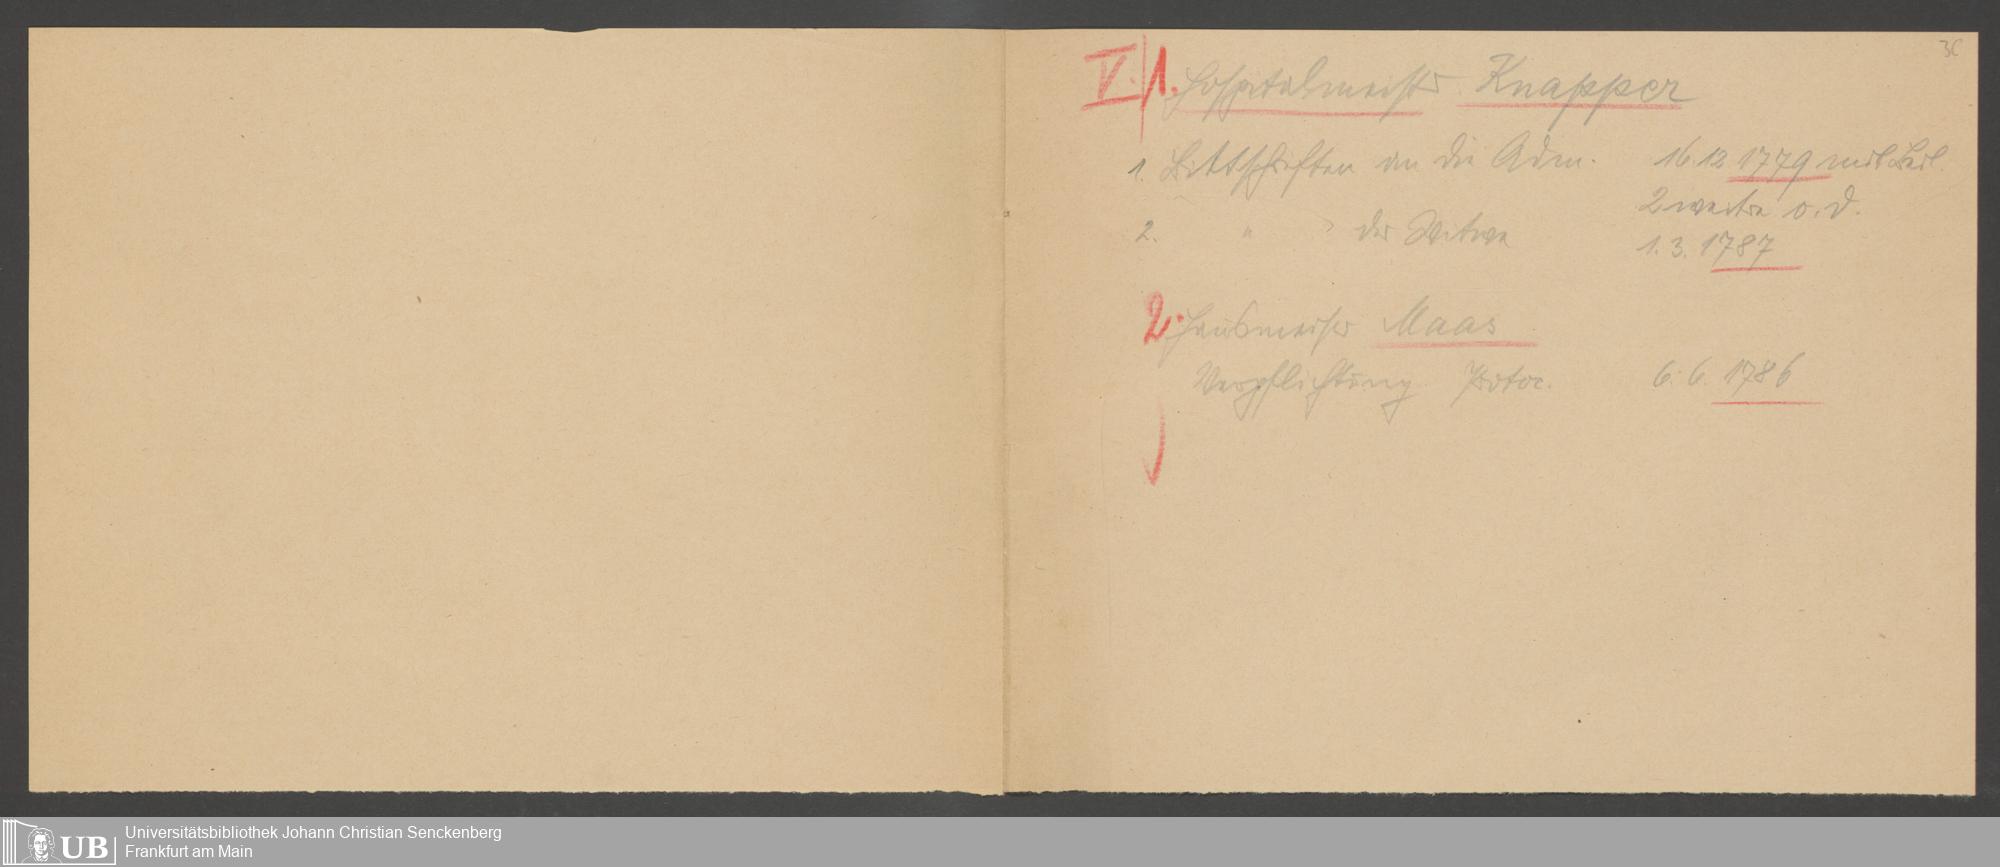 36
V. 1. Hospitalmeister Knapper
1. Bittschriften an die Adm. 16.12.1779 mit Beil.
2 weitere o. D.
2. " " der Witwe 1.3.1787
2. Hausmeister Maas
Verpflichtung Protoc. 6.6.1786
UB
Universitätsbibliothek Johann Christian Senckenberg
Frankfurt am Main